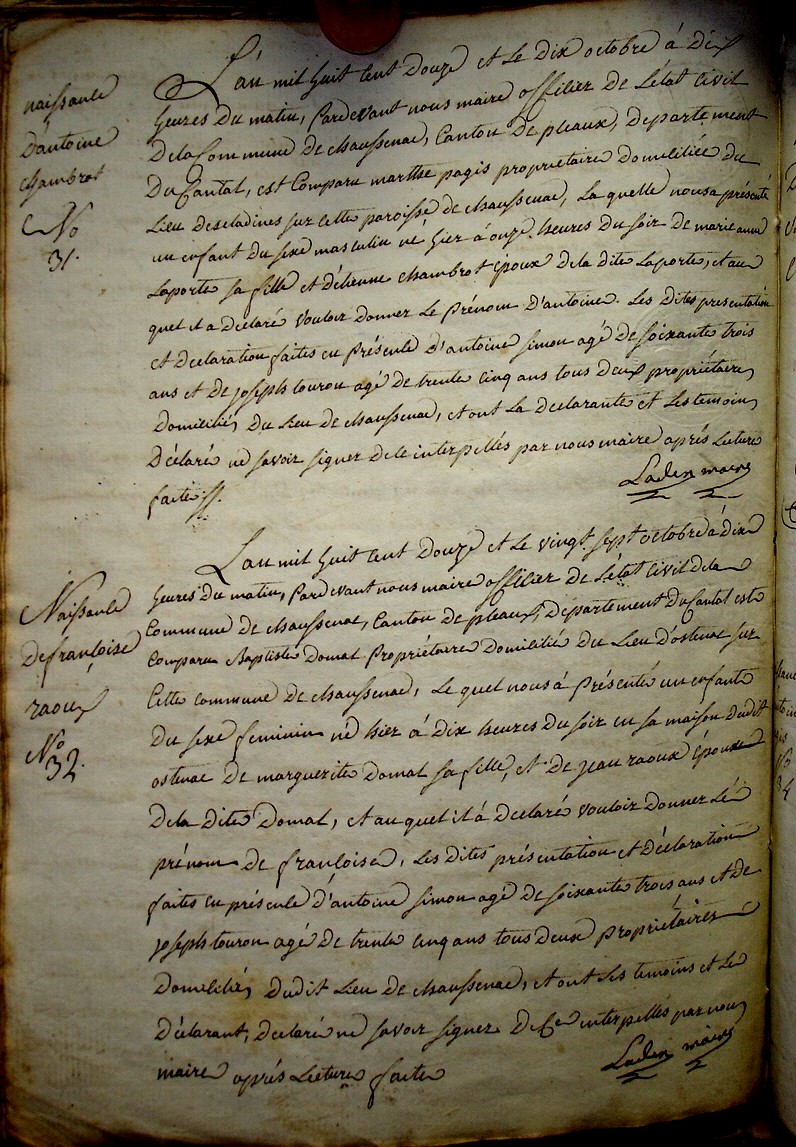 naissance
D'antoine
chambrot
No
31.
L'an mil huit cent Douze et Le Dix octobre à Dix
heures Du matin, Pardevant nous maire officier De L'état Civil
De la Commune De chaussenac, Canton De pleaux, Departement
Du Cantal, est Comparu marthe pagis propriétaire Domiciliée Du
Lieu Descladines sur cette paroisse De chaussenac, La quelle nous a présenté
un enfant Du sexe masculin né hier à onze heures Du soir De marie anne
Laporte sa fille et D'étienne chambrot époux De la dite Laporte, et au
quel il a Déclaré vouloir Donner Le Prénom D'antoine. Les Dites presentation
et Declaration faites en Présence D'antoine simon agé De soixante trois
ans et De joseph touron agé De trente cinq ans tous Deux propriétaires
Domiciliés Du Lieu De chaussenac, et ont La Declarante et Les temoins
Déclaré ne savoir signer De ce interpellés par nous maire après Lecture
faite
Laden maire
Naissance
De françoise
raoux
No
32.
L'an mil huit cent Douze et Le vingt sept octobre à Dix
heures Du matin, Pardevant nous maire officier De L'état Civil De la
Commune De chaussenac, Canton De pleaux, Département Du Cantal est
Comparu Baptiste Domat Propriétaire Domicilié Du Lieu D'ostenac sur
Cette commune De chaussenac, Le quel nous à Présenté un enfant
Du sexe feminin né hier à Dix heures Du soir en sa maison Dudit
ostenac De marguerite Domat sa fille, et De jean raoux époux
De la Dite Domat, et au quel il à Declaré vouloir Donner Le
prénom De françoise, Les Dites présentation et Déclaration
faites en présence D'antoine simon agé De soixante trois ans et De
joseph touron agé De trente cinq ans tous Deux propriétaires
Domiciliés Dudit Lieu De chaussenac, et ont Les temoins et Le
Déclarant, Declaré ne savoir signer De Ce interpellés par nous
maire après Lecture faite
Laden maire